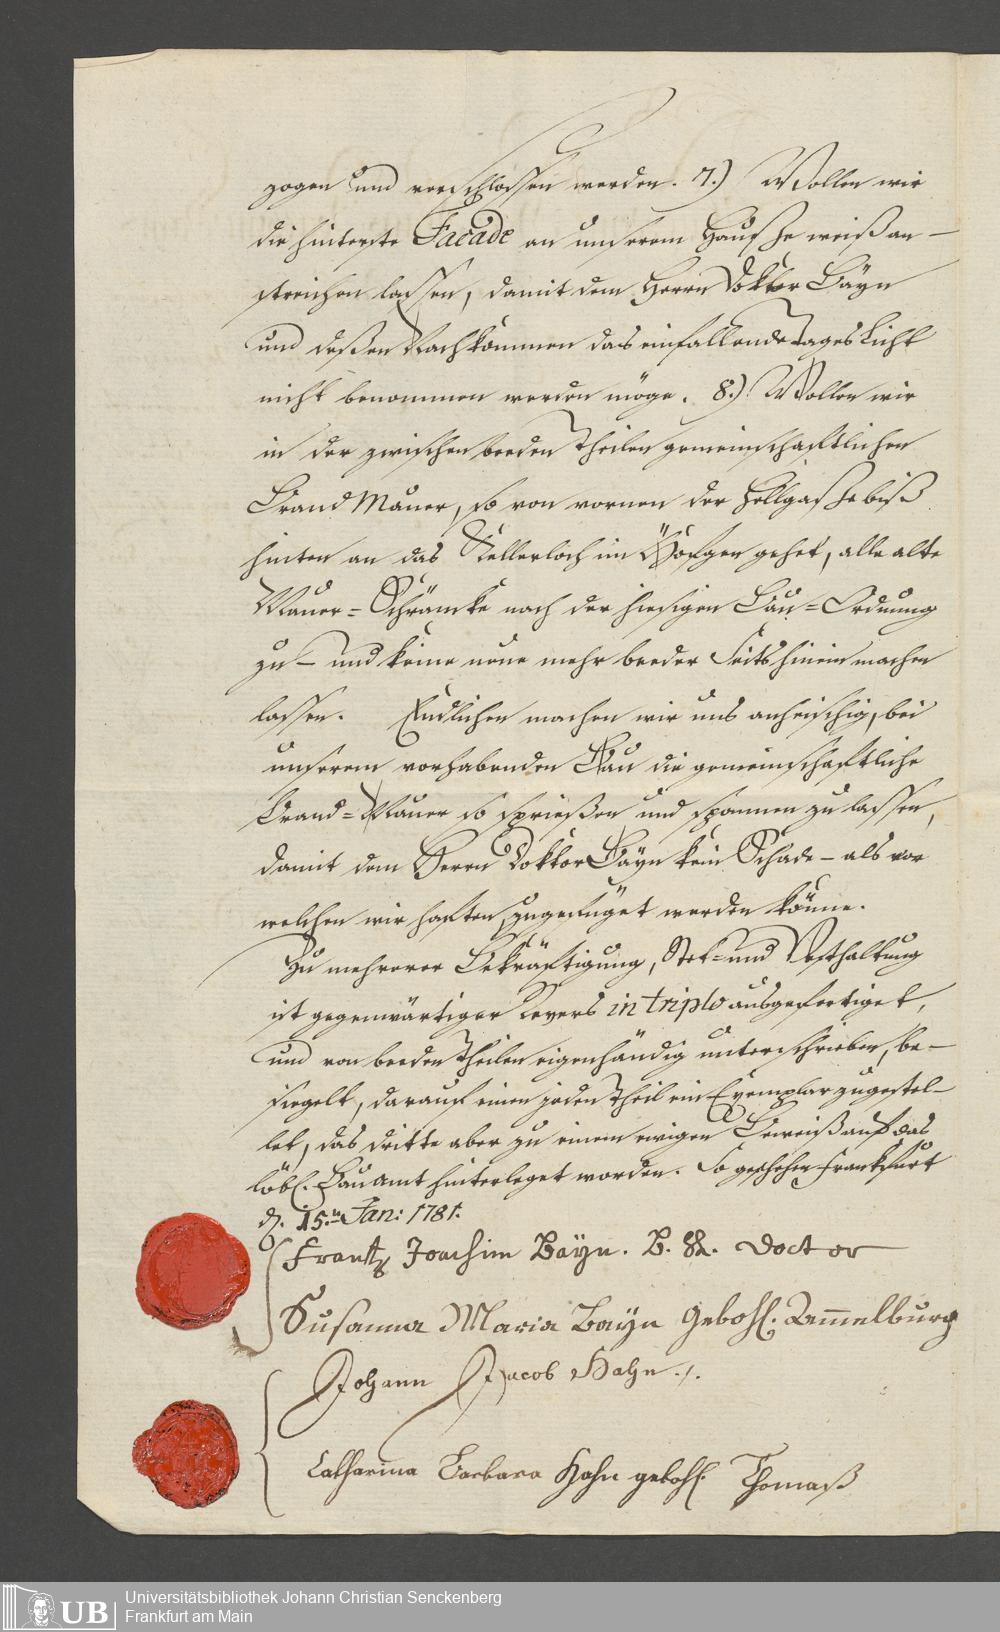 zogen und verschlossen werden. 7.) Wollen wir
die hinterste Facade an unserem Hausse weiß an-
streichen lassen, damit dem Herrn Doktor Bayn
und deßen Nachkommen das einfallende Tages Licht
nicht benommen werden möge. 8.) Wollen wir
in der zwischen beeden Theilen gemeinschaftlichen
Brand Mauer, so von vornen der Höllgasse biß
hinten an das Kellerloch im Höfgen gehet, alle alte
Mauer-Schräncke nach der hiesigen Bau-Ordnung
zu- und keine neue mehr beeder Seits hinein machen
lassen. Endlichen machen wir uns anheischig, bei
unserem vorhabenden Bau die gemeinschaftliche
Brand-Mauer so sprießen und spannen zu lassen,
damit dem Herrn Doktor Bayn kein Schade - als vor
welchen wir haften, zugefüget werden könne.
Zu mehrerer Bekräftigung, Stet- und Vesthaltung
ist gegenwärtiger Revers in triplo ausgefertiget,
und von beeden Theilen eigenhändig unterschrieben, be-
siegelt, darauf einem jeden Theil ein Exemplar zugestel-
let, das dritte aber zu einem ewigen Beweiß auf das
löbl. Bauamt hinterleget worden. So geschehen Frankfurt
d. 15.n Jan: 1781.
Frantz Joachim Bayn. B. R. Doctor
Susanna Maria Bayn gebohl. Lem̄elburg
Johann Jacob Hahn ./.
Catharina Barbara Hahn gebohl. Thomaß
Universitätsbibliothek Johann Christian Senckenberg
UB Frankfurt am Main